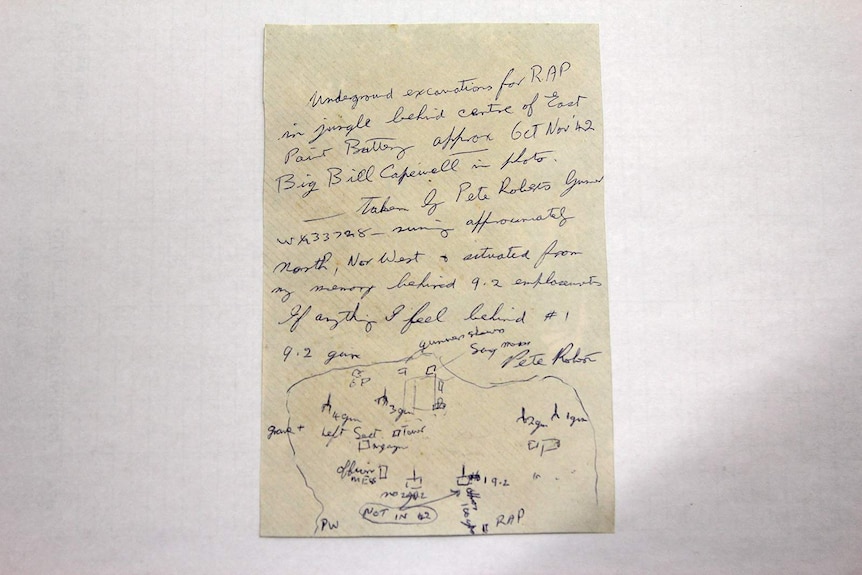 Underground excavations for RAP
in jungle behind centre of East
Point Battery approx Oct Nov '42
Big Bill Capewell in photo.
— Taken by Pete Roberts Gunner
approximately
North, Nor West & situated from
my memory behind 9.2 emplacements
If anything I feel behind #1
9.2 gun
Pete
Sgt mess
OP
4 gun
3 gun
2 gun
1 gun
grave +
Left Sect
Tower
officers
MESS
no 2 9.2
#1 9.2
NOT IN 42
PW
RAP